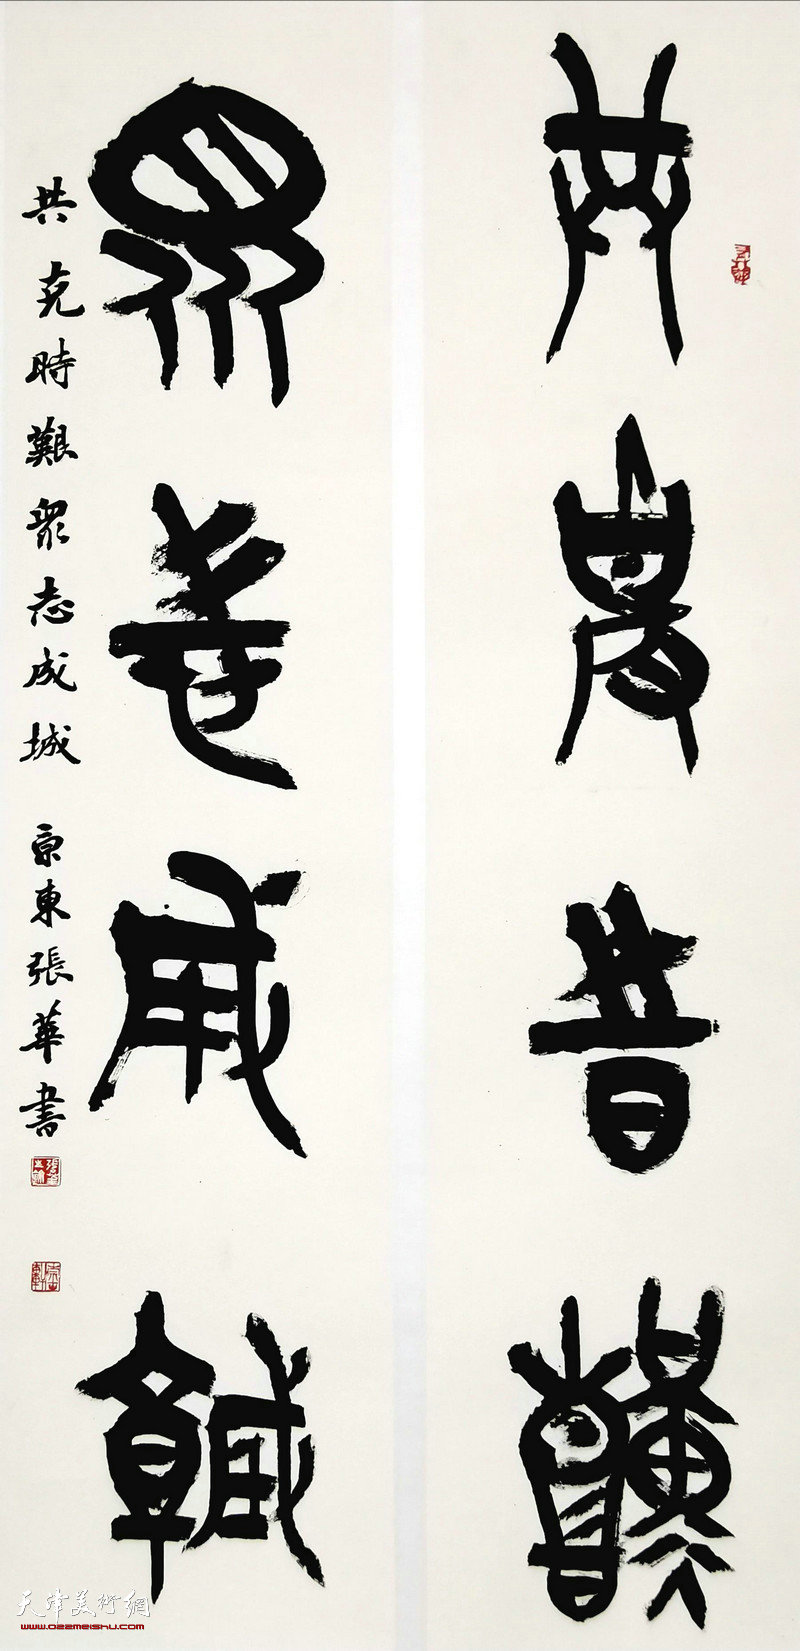 共克時艱
衆志成城
共克時艱衆志成城 京東張華書
天津美術網
www.022meishu.com